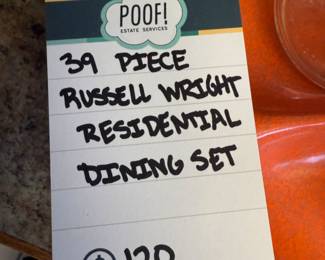 POOF!
ESTATE SERVICES
39 PIECE
RUSSELL WRIGHT
RESIDENTIAL
DINING SET
$ 120